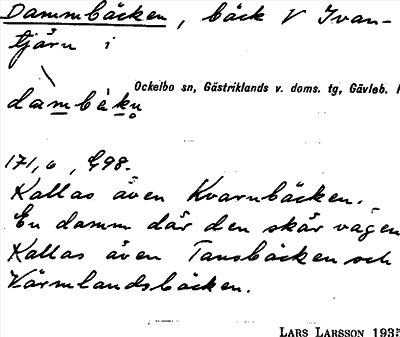 Dammbäcken, bäck V Ivan-
tjärn i
Ockelbo sn, Gästriklands v. doms. tg, Gävleb.
171, 6, G98.
Kallas även Kvarnbäcken.
En damm där den skär vägen
Kallas även Tansbäcken och
Värmlandsbäcken.
LARS LARSSON 1935